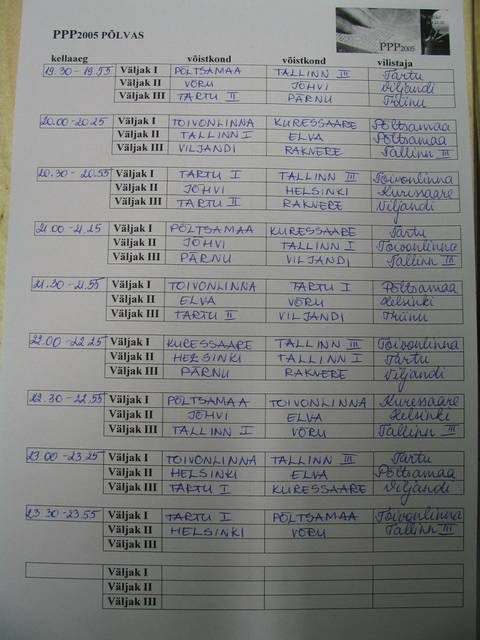 PPP2005 PÕLVAS
PPP2005
kellaaeg võistkond võistkond vilistaja
19.30-19.55 Väljak I PÕLTSAMAA TALLINN III Tartu
Väljak II VÕRU JÕHVI Viljandi
Väljak III TARTU II PÄRNU Triinu
20.00-20.25 Väljak I TOIVONLINNA KURESSAARE Põltsamaa
Väljak II TALLINN I ELVA Põltsamaa
Väljak III VILJANDI RAKVERE Tallinn III
20.30-20.55 Väljak I TARTU I TALLINN III Toivonlinna
Väljak II JÕHVI HELSINKI Kuressaare
Väljak III TARTU II RAKVERE Viljandi
21.00-21.25 Väljak I PÕLTSAMAA KURESSAARE Tartu
Väljak II JÕHVI TALLINN I Toivonlinna
Väljak III PÄRNU VILJANDI Tallinn III
21.30-21.55 Väljak I TOIVONLINNA TARTU I Põltsamaa
Väljak II ELVA VÕRU Helsinki
Väljak III TARTU II VILJANDI Triinu
22.00-22.25 Väljak I KURESSAARE TALLINN III Toivonlinna
Väljak II HELSINKI TALLINN I Tartu
Väljak III PÄRNU RAKVERE Viljandi
22.30-22.55 Väljak I PÕLTSAMAA TOIVONLINNA Kuressaare
Väljak II JÕHVI ELVA Helsinki
Väljak III TALLINN I VÕRU Tallinn III
23.00-23.25 Väljak I TOIVONLINNA TALLINN III Tartu
Väljak II HELSINKI ELVA Põltsamaa
Väljak III TARTU I KURESSAARE Viljandi
23.30-23.55 Väljak I TARTU I PÕLTSAMAA Toivonlinna
Väljak II HELSINKI VÕRU Tallinn III
Väljak III
Väljak I
Väljak II
Väljak III